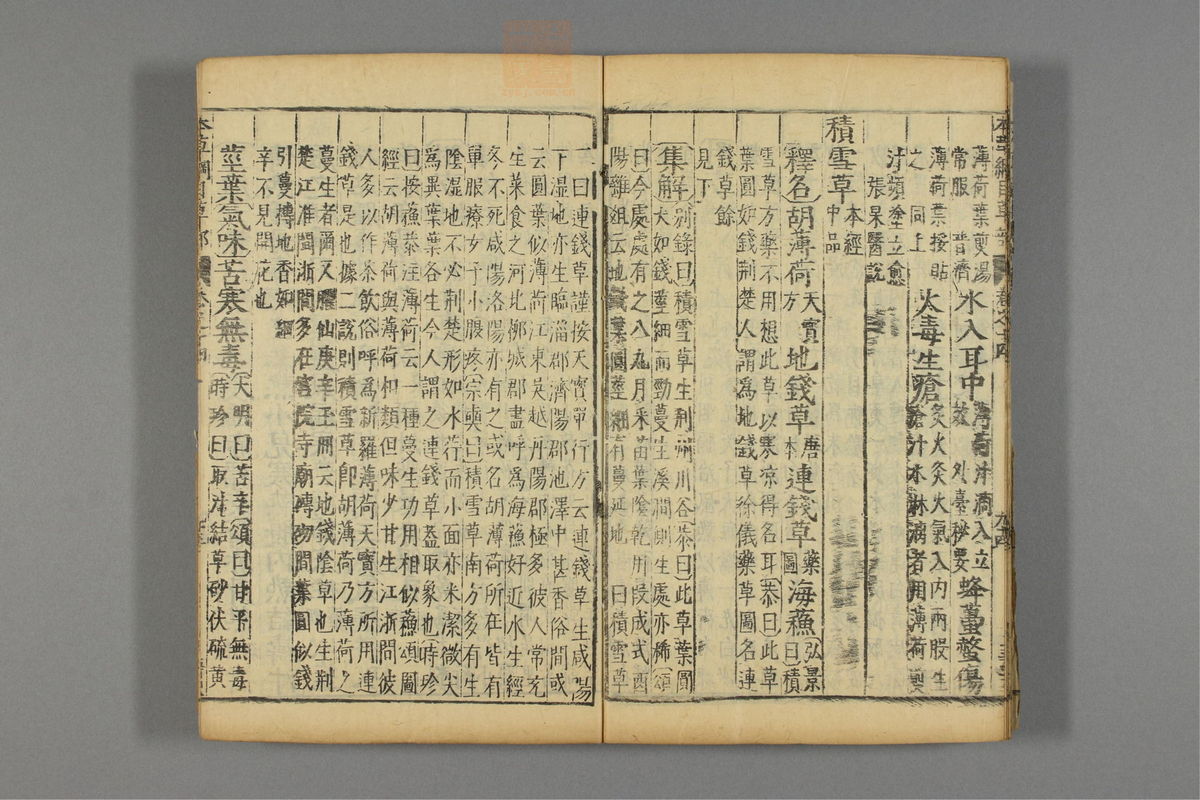 薄荷葉煎湯
常服　普濟
薄荷葉挼貼
之　同上
水入耳中
薄荷汁滴入立
效　外臺秘要
蜂蠆螫傷
火毒生瘡
炙火灸火氣入内兩股生
瘡汁水淋漓者用薄荷煎
汁頻塗立愈
張杲醫説
積雪草
本經
中品
釋名胡薄荷
天寶
方
地錢草
唐
本
連錢草
藥
圖
海蘓
弘景
曰積
雪草方藥不用想此草以寒凉得名耳恭曰此草
葉圓如錢荆楚人謂爲地錢草徐儀藥草圖名連
錢草餘
見下
集解
别錄曰積雪草生荆州川谷恭曰此草葉圓
大如錢莖細而勁蔓生溪澗側生處亦稀頌
曰今處處有之八九月采苗葉陰乾用段成式酉
陽雜俎云地錢葉圓莖細有蔓延地　曰積雪草
一曰連錢草謹按天寶單行方云連錢草生咸陽
下濕地亦生臨淄郡濟陽郡池澤中甚香俗間或
云圓葉似薄荷江東吳越丹陽郡極多彼人常充
生菜食之河北柳城郡盡呼爲海蘓好近水生經
冬不死咸陽洛陽亦有之或名胡薄荷所在皆有
單服療女子小腹疼宗奭曰積雪草南方多有生
陰濕地不必荆楚形如水荇而小面亦米潔微尖
爲異葉葉各生今人謂之連錢草蓋取象也時珍
曰按蘓恭注薄荷云一種蔓生功用相似蘓頌圖
經云胡薄荷與薄荷相類但味少甘生江浙間彼
人多以作茶飲俗呼爲新羅薄荷天寶方所用連
錢草是也據二說則積雪草即胡薄荷乃薄荷之
蔓生者爾又臞仙庚辛玉冊云地錢陰草也生荆
楚江淮間浙間多在宮院寺廟磚砌間葉圓似錢
引蔓摶地香如
辛不見開花也
莖葉氣味苦寒無毒
大明曰苦辛頌曰甘平無毒
時珍曰取汁結草砂伏硫黄